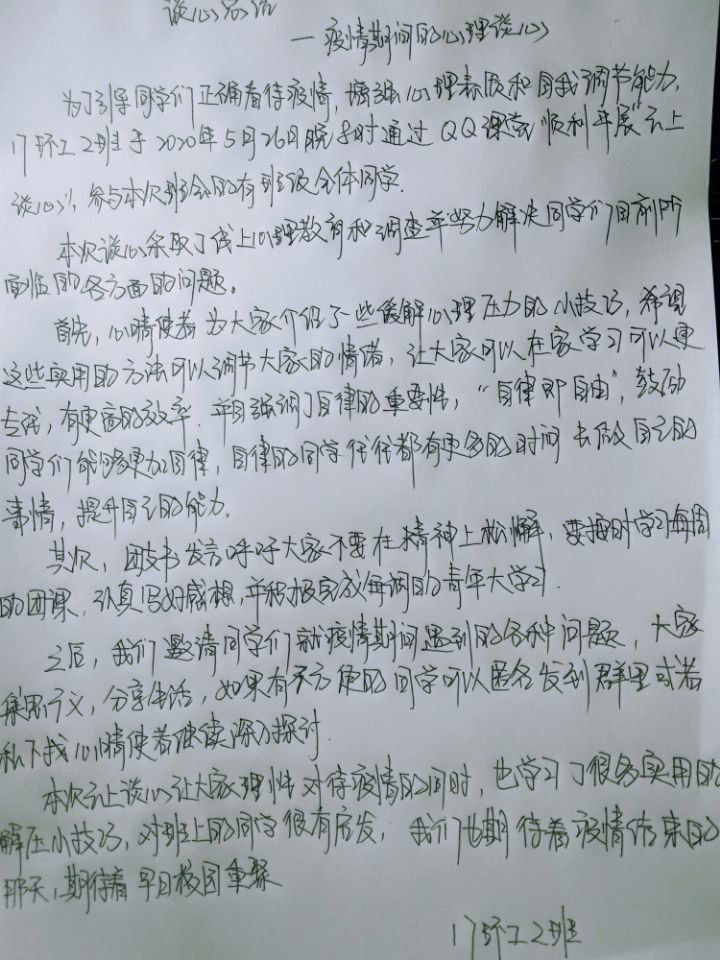 谈心总结
—疫情期间的心理谈心
为了引导同学们正确看待疫情,增强心理素质和自我调节能力,
17环工2班于2020年5月26日晚8时通过QQ课堂顺利开展“云上
谈心”,参与本次班会的有班级全体同学.
本次谈心采取了线上心理教育和调查并努力解决同学们目前所
面临的各方面的问题。
首先,心晴使者为大家介绍了一些缓解心理压力的小技巧,希望
这些实用的方法可以调节大家的情绪,让大家可以在家学习可以更
专注,有更高的效率.并且强调了自律的重要性,“自律即自由”,鼓励
同学们能够更加自律,自律的同学往往都有更多的时间去做自己的
事情,提升自己的能力.
其次,团支书发言呼吁大家不要在精神上松懈,要按时学习每周
的团课,认真写好感想,并积极完成每周的青年大学习.
之后,我们邀请同学们就疫情期间遇到的各种问题,大家
集思广义,分享生活,如果有不方便的同学可以匿名发到群里或者
私下找心情使者继续深入探讨.
本次云上谈心让大家理性对待疫情的同时,也学习了很多实用的
解压小技巧,对班上的同学很有启发,我们也期待着疫情结束的
那天,期待着早日校园重聚
17环工2班